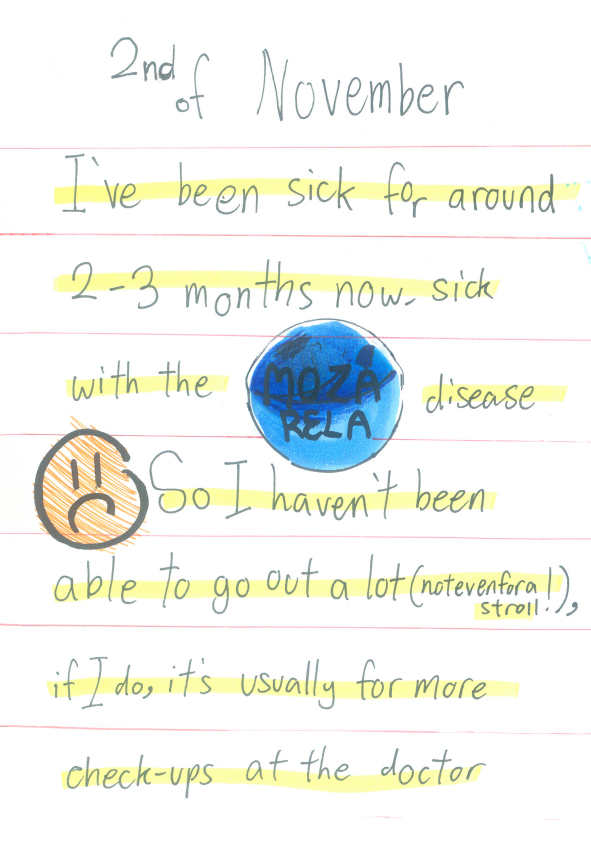 2nd of November
I've been sick for around
2-3 months now. sick
with the MOZA RELA disease
So I haven't been
able to go out a lot (not even for a stroll!!),
if I do, it's usually for more
check-ups at the doctor